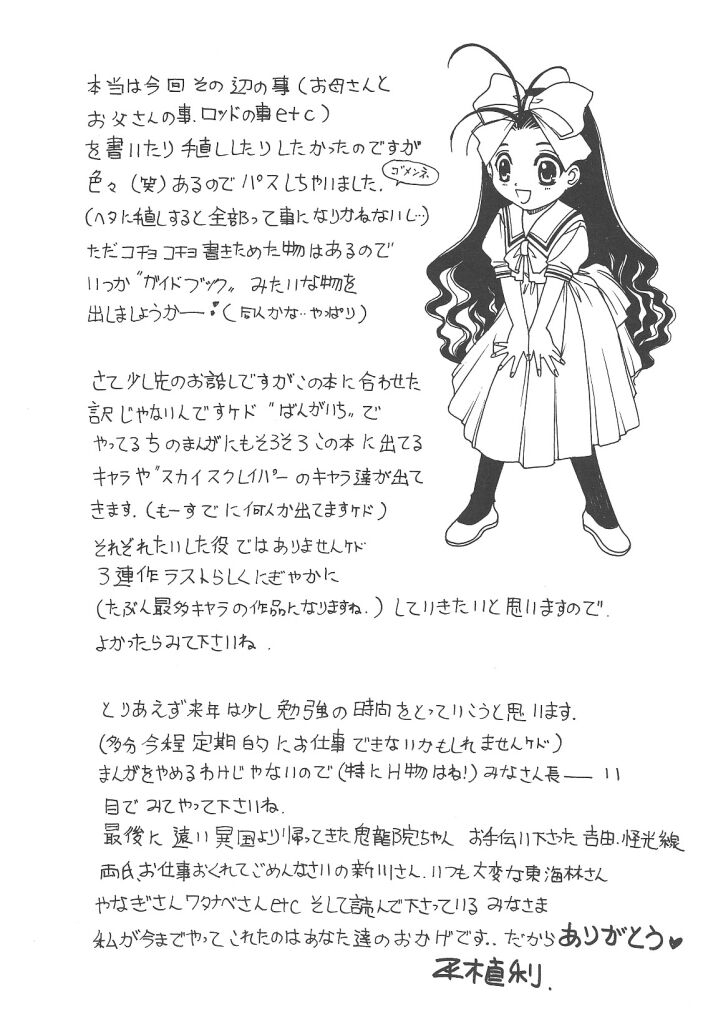 本当は今回その辺の事(お母さんと
お父さんの事、ロッドの事etc)
を書いたり値ししたりしたかったのですが
色々(笑)あるのでパスしちゃいました.
ゴメンネ
(ヘタに値しすると全部って事になりかねないし…)
ただコチョコチョ書きためた物はあるので
いつか“ガイドブック〟みたいな物を
出しましょうかー・(同人かな…やっぱり)
さて少し先のお話しですがこの本に合わせた
訳じゃないんですケド“ばんがいち〟で
やってるちのまんがにもそろそろこの本に出てる
キャラや“スカイスクレイパーのキャラ達が出て
きます.(もーすでに何人か出てますケド)
それぞれたいした役ではありませんケド
3連作ラストらしくにぎやかに
(たぶん最多キャラの作品になりますね.)していきたいと思いますので.
よかったらみて下さいね.
とりあえず来年は少し勉強の時間をとっていこうと思います.
(多分今程定期的にお仕事できないかもしれませんケド)
まんがをやめるわけじゃないので(特にH物はね!)みなさん長ーい
目でみてやって下さいね.
最後に遠い異国より帰ってきた鬼龍院ちゃん お手伝い下さった吉田.怪光線
両氏、お仕事おくれてごめんなさいの新川さん.いつも大変な東海林さん
やなぎさんワタナベさんetc そして読んで下さっているみなさま
私が今までやってこれたのはあなた達のおかげです..だからありがとう♥
平木直利.